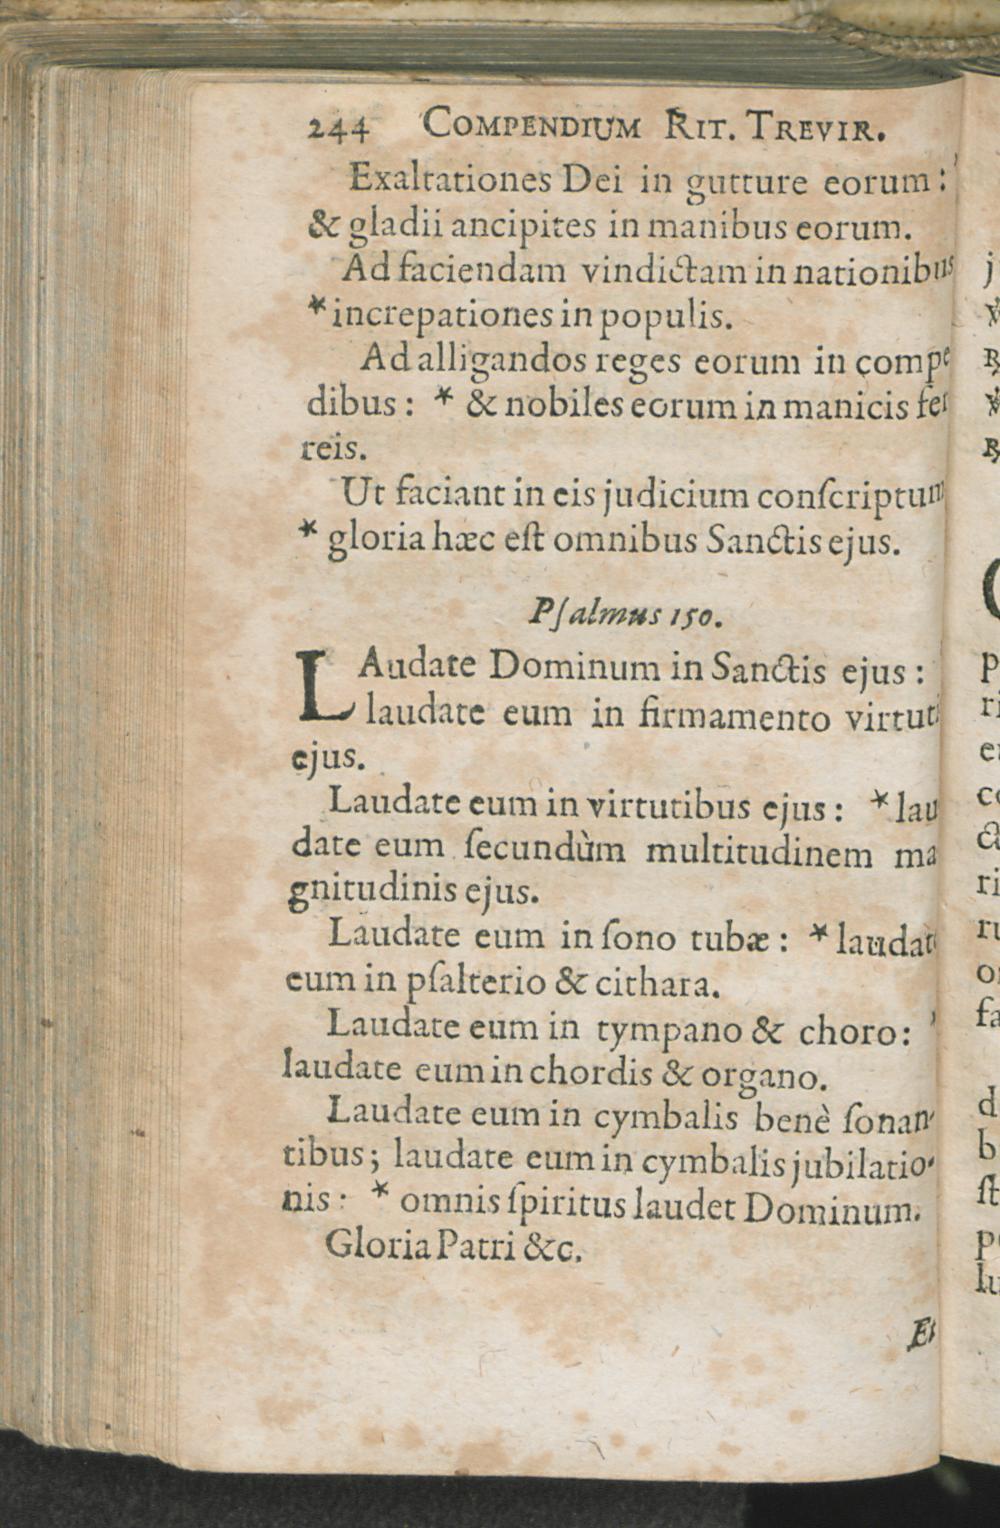 244 COMPENDIUM RIT. TREVIR.
Exaltationes Dei in gutture eorum:
& gladii ancipites in manibus eorum.
Ad faciendam vindictam in nationibus
* increpationes in populis.
Ad alligandos reges eorum in compe
dibus: * & nobiles eorum in manicis fer
reis.
Ut faciant in eis judicium conſcriptum
* gloria hæc eſt omnibus Sanctis ejus.
Pſalmus 150.
LAudate Dominum in Sanctis ejus:
laudate eum in firmamento virtuti
ejus.
Laudate eum in virtutibus ejus: * lau
date eum ſecundùm multitudinem ma
gnitudinis ejus.
Laudate eum in ſono tubæ: * laudate
eum in pſalterio & cithara.
Laudate eum in tympano & choro:
laudate eum in chordis & organo.
Laudate eum in cymbalis benè ſonan-
tibus; laudate eum in cymbalis jubilatio-
nis: * omnis ſpiritus laudet Dominum.
Gloria Patri &c.